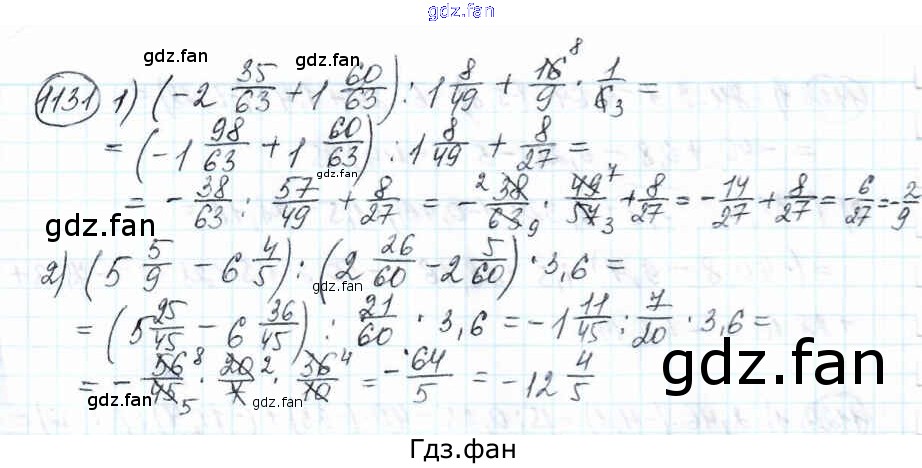 gdz.fan
gdz.fan gdz.fan
1131 1) (-2 35/63 + 1 60/63) : 1 8/49 + 16/9 8 · 1/6 3 =
= (-1 98/63 + 1 60/63) : 1 8/49 + 8/27 =
= - 38/63 : 57/49 + 8/27 = - 2 38/63 9 · 49 7/57 3 + 8/27 = - 14/27 + 8/27 = - 6/27 = - 2/9
gdz.fan gdz.fan
2) (5 5/9 - 6 4/5) : (2 26/60 - 2 5/60) · 3,6 =
gdz.fan
= (5 25/45 - 6 36/45) : 21/60 · 3,6 = -1 11/45 : 7/20 · 3,6 =
gdz.fan
= - 56 8/45 5 · 20 2/7 · 36 4/10 = - 64/5 = -12 4/5
gdz.fan
Гдз.фан